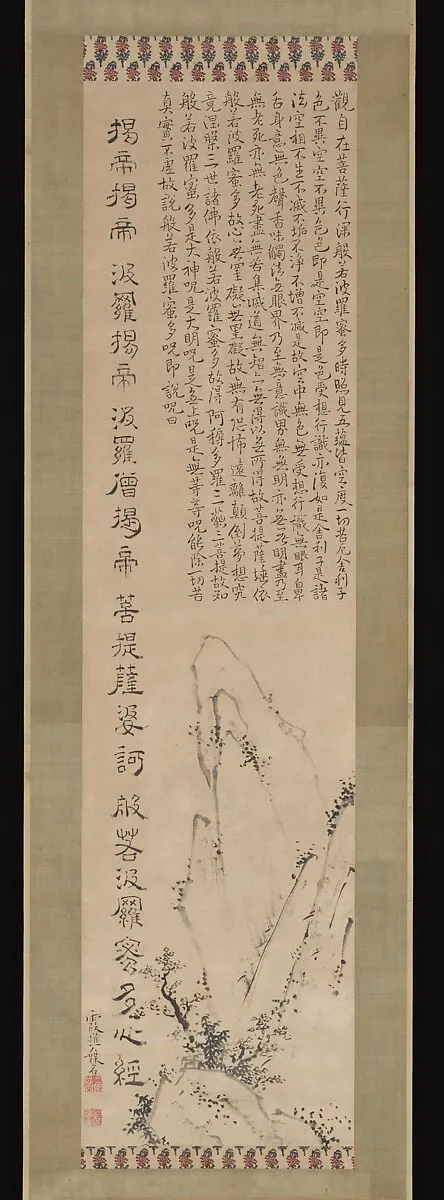 觀自在菩薩行深般若波羅蜜多時照見五蘊皆空度一切苦厄舍利子
色不異空空不異色色即是空空即是色受想行識亦復如是舍利子是諸
法空相不生不滅不垢不淨不增不減是故空中無色無受想行識無眼耳鼻
舌身意無色聲香味觸法無眼界乃至無意識界無無明亦無無明盡乃至
無老死亦無老死盡無苦集滅道無智亦無得以無所得故菩提薩埵依
般若波羅蜜多故心無罣礙無罣礙故無有恐怖遠離顛倒夢想究
竟涅槃三世諸佛依般若波羅蜜多故得阿耨多羅三藐三菩提故知
般若波羅蜜多是大神呪是大明呪是無上呪是無等等呪能除一切苦
真實不虛故說般若波羅蜜多呪即說呪曰
揭帝揭帝波羅揭帝波羅僧揭帝菩提薩婆訶般若波羅蜜多心經
霞樵無名